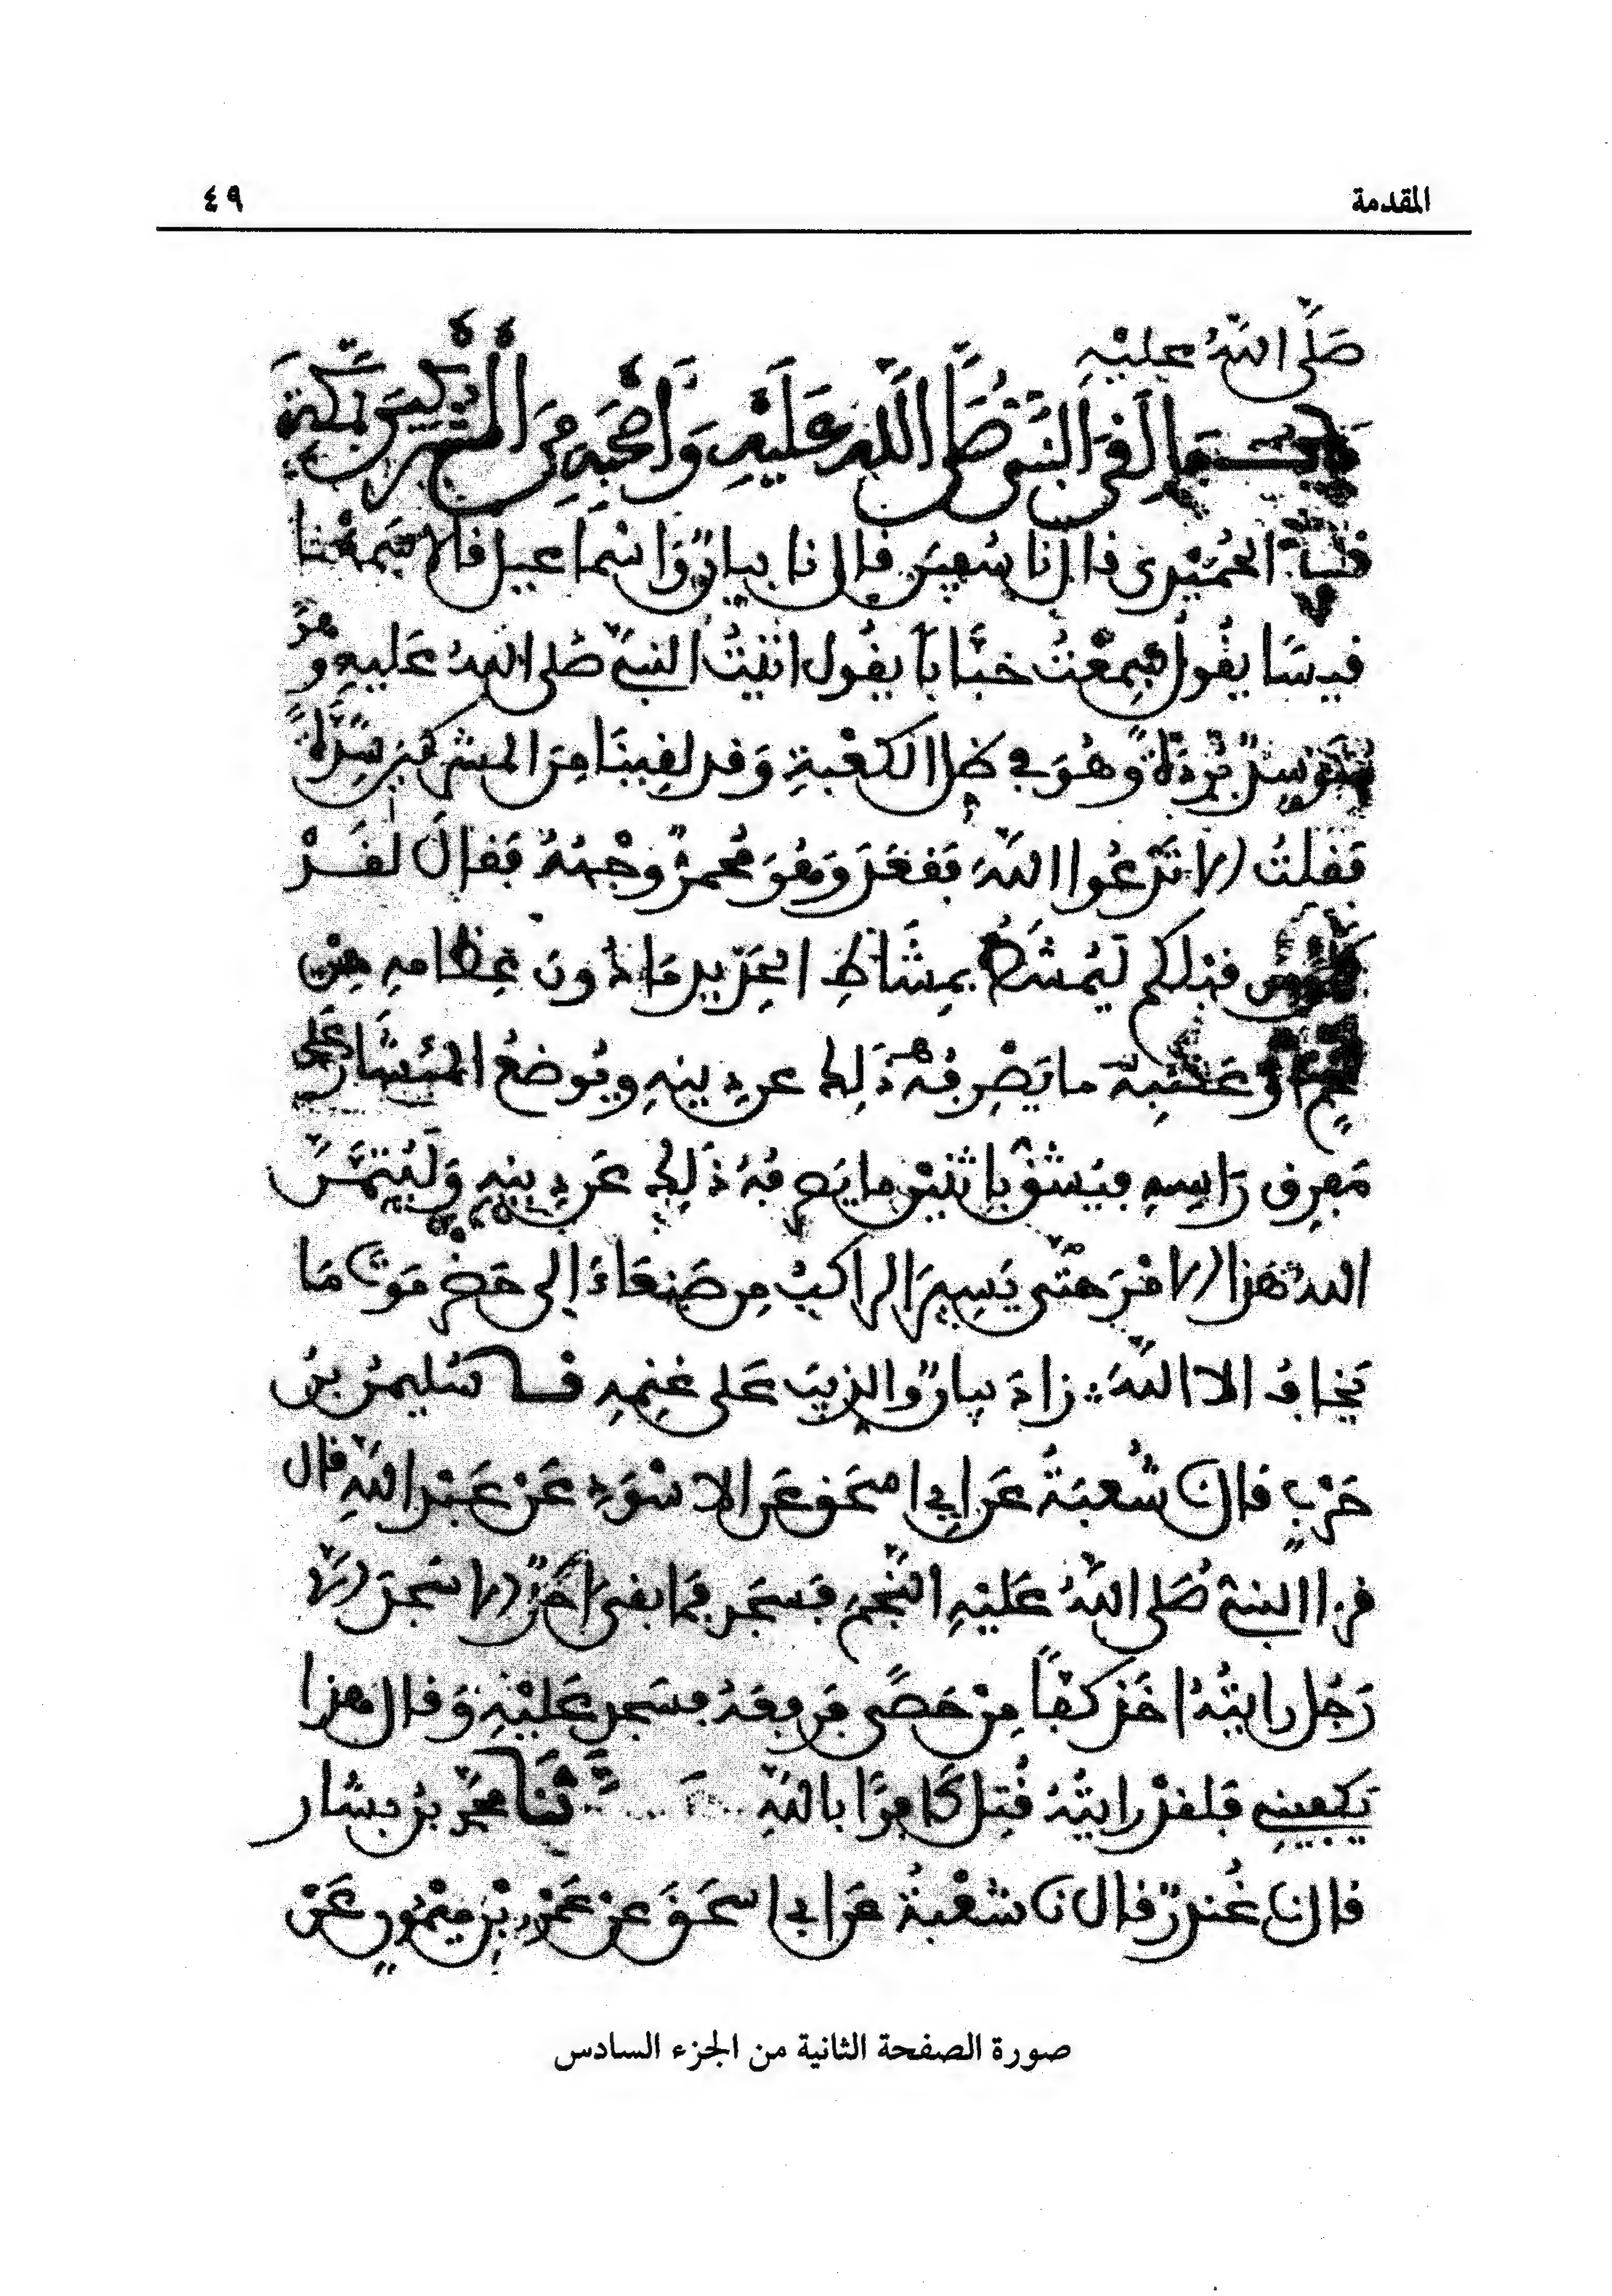 المقدمة ٤٩
صَلَّى اللهُ عليْهِ
مَا لَقِيَ النَّبي صَلَّى اللَّه عَلَيْهِ وَأَصْحَبُهُ مِنَ الْمُشْرِكِينَ بِمَكَّةَ
الحُمَيْدِي قال نا سُفيٰن قال نا بيانٌ وَإسْمَاعيل قالا سَمِعْنَا
قيسًا يقُول سَمِعْتُ خبَّابًا يقُول أتَيْتُ النبيَّ صَلى اللهُ عَليهِ وهُوَ
مُتَوَسِدٌ بُرْدَةً وهُوَ في ظِل الكعْبةِ وَقد لقِينَا مِنَ المشركين شِدَّةً
فَقلتُ ألا تَدْعُوا اللهَ فَقعَدَ وَهُوَ مُحمرٌّ وجْهُهُ فَقالَ لقَدْ
كان من قبلكم لَيُمْشَطُ بمِشَاطِ الحَدِيدِ مَا دُونَ عِظامهِ مِنْ
لحمٍ أوْ عَصَبٍ ما يَصْرِفُهُ ذَلِك عن دِينِهِ ويُوضعُ المئشَار عَلى
مَفْرِقِ رَاسِهِ فيُشقُّ باثنَيْنِ ما يَصرفُهُ ذَلِك عَن دِينِهِ وَلَيُتِمَّنَّ
الله هَذا الأمْرَ حتَّى يَسِيرَ الراكبُ مِن صَنعَاءَ إلى حَضرمَوتَ مَا
يَخافُ الا اللهَ زادَ بيانٌ والذِيبَ عَلى غنمِهِ نا سُليمٰنُ بنُ
حَرْبٍ قال نا شُعبَةُ عَن أبِي إسحَق عَن الاسْوَدِ عَنْ عَبْدِ اللهِ قال
قرأ النبيُّ صَلى اللهُ عَليْهِ النَّجمَ فسَجَد فمَا بقىَ أحَدٌ إلا سَجدَ إلا
رَجُل رايتُهُ أخَذ كفًّا مِنْ حَصًى فرَفعَهُ فسَجد عَليْهِ وَقال هذا
يَكفِينِي فَلقدْ رايتُهُ قُتِل كَافِرًا باللهِ نَا محمد بنُ بشار
قال نا غُندرٌ قال نا شعْبةُ عَن أبي إسحَق عنْ عَمْرو بْنِ مَيْمُونٍ عَنْ
صورة الصفحة الثانية من الجزء السادس